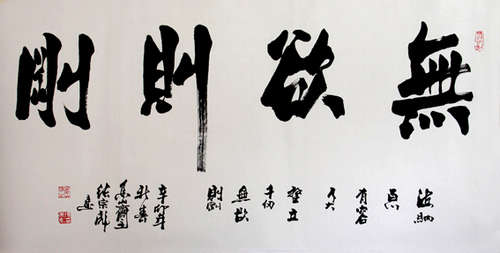 無欲則剛
海納
百川
有容
乃大
壁立
千仞
無欲
則剛
辛卯年
新春
書